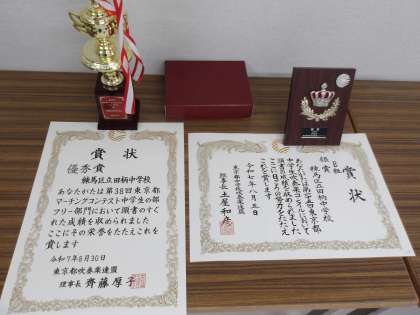 賞状
優秀賞
練馬区立田柄中学校
あなたがたは第38回東京都
マーチングコンテスト中学生の部
フリー部門において頭書のすぐ
れた成績を収められました
ここにその栄誉をたたえこれを
賞します
令和7年8月30日
東京都吹奏楽連盟
理事長 齊藤厚子
賞状
銀賞 B組
練馬区立田柄中学校
あなたがたは第六十五回東京都
中学生吹奏楽コンクールにおいて
頭書の成績を収められました
ここにその努力をたたえ
これを賞します
令和七年八月五日
東京都中学校吹奏楽連盟
理事長 土屋和彦